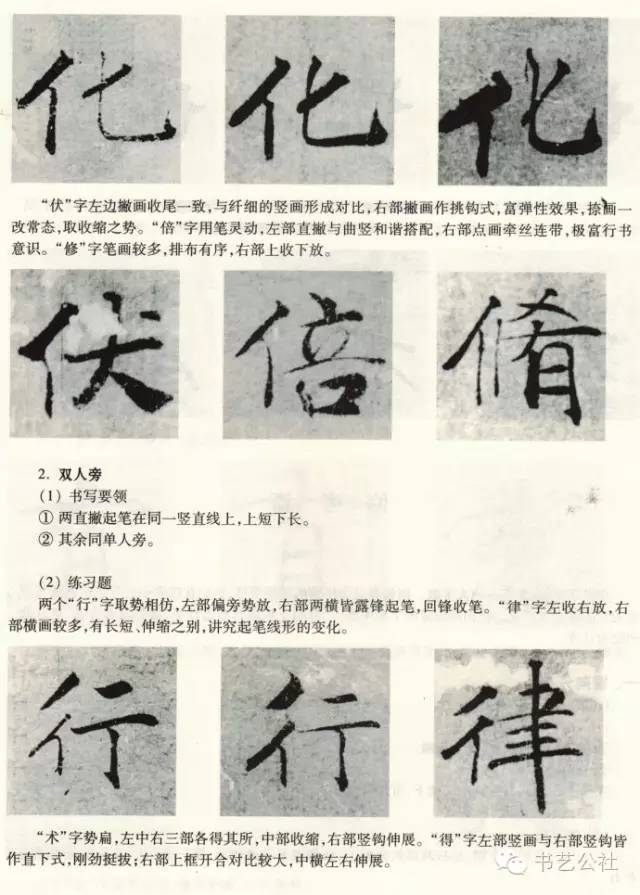 化 化 化
“伏”字左边撇画收尾一致,与纤细的竖画形成对比,右部撇画作挑钩式,富弹性效果,捺画一
改常态,取收缩之势。“倍”字用笔灵动,左部直撇与曲竖和谐搭配,右部点画牵丝连带,极富行书
意识。“修”字笔画较多,排布有序,右部上收下放。
伏 倍 脩
2. 双人旁
(1) 书写要领
① 两直撇起笔在同一竖直线上,上短下长。
② 其余同单人旁。
(2) 练习题
两个“行”字取势相仿,左部偏旁势放,右部两横皆露锋起笔,回锋收笔。“律”字左收右放,右
部横画较多,有长短、伸缩之别,讲究起笔线形的变化。
行 行 律
“术”字势扁,左中右三部各得其所,中部收缩,右部竖钩伸展。“得”字左部竖画与右部竖钩皆
作直下式,刚劲挺拔;右部上框开合对比较大,中横左右伸展。
书艺公社